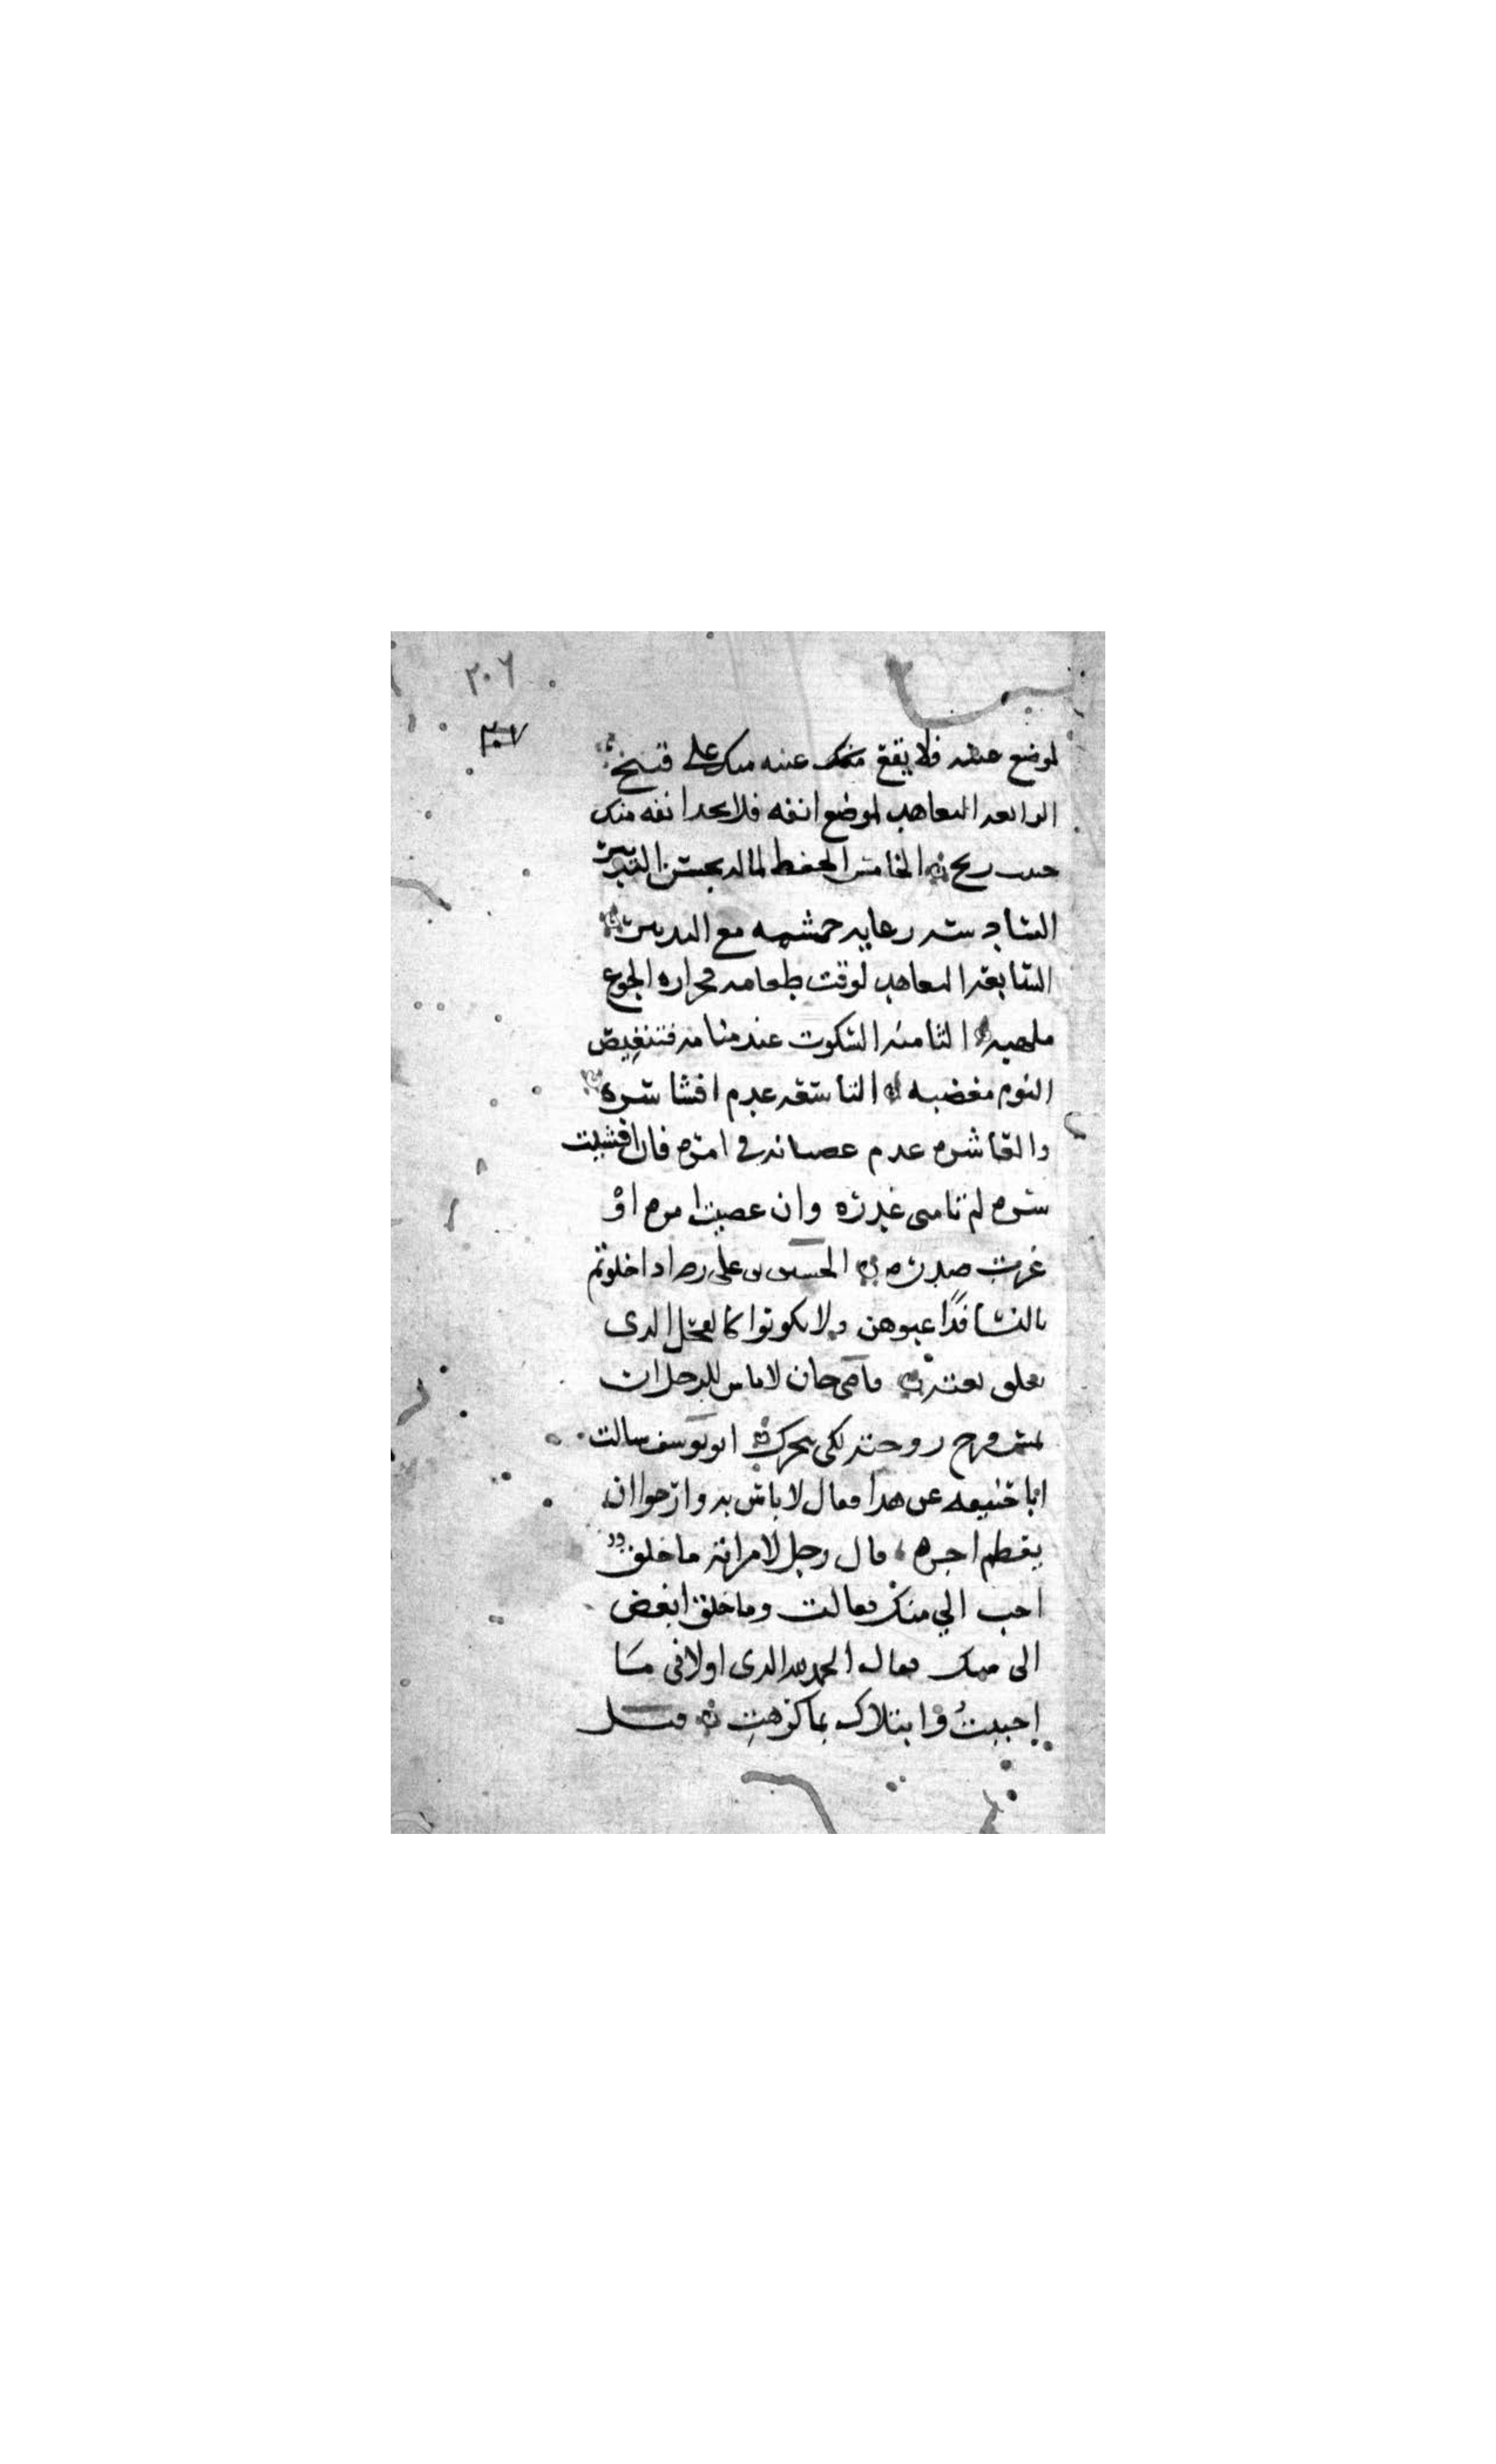 ٢٠٦
٢٠٧
لموضع عينه فلا يقع منك عينه منك على قبيح
الرابعة التعاهد لموضع انفه فلا يجد انفه منك
خبث ريح الخامس الحفظ لماله بحسن التدبير
السادسة رعاية حشمه مع التدبير
السابعة التعاهد لوقت طعامه فحرارة الجوع
ملهبة الثامنة السكوت عند منامه فتنغيص
النوم مغضبة التاسعة عدم افشا سره
والعاشرة عدم عصيانه في امره فان افشيت
سره لم تامني غدره وان عصيت امره اوْ
غرت صدره الحسين بن علي رضـ اذا خلوتم
بالنسا فداعبوهن ولا تكونوا كالفحل الذى
قاضي خان لا باس للرجل ان
يمس فرج زوجته لكي يتحرك ابو يوسف سالت
ابا حنيفه عن هذا فقال لا باس به وارجوا ان
يعظم اجره قال رجل لامراته ما خلق
احب الي منك فقالت وما خلق ابغض
الى منك فقال الحمد لله الذى اولاني مَا
احببتُ وابتلاك بما كرهتِ قيل